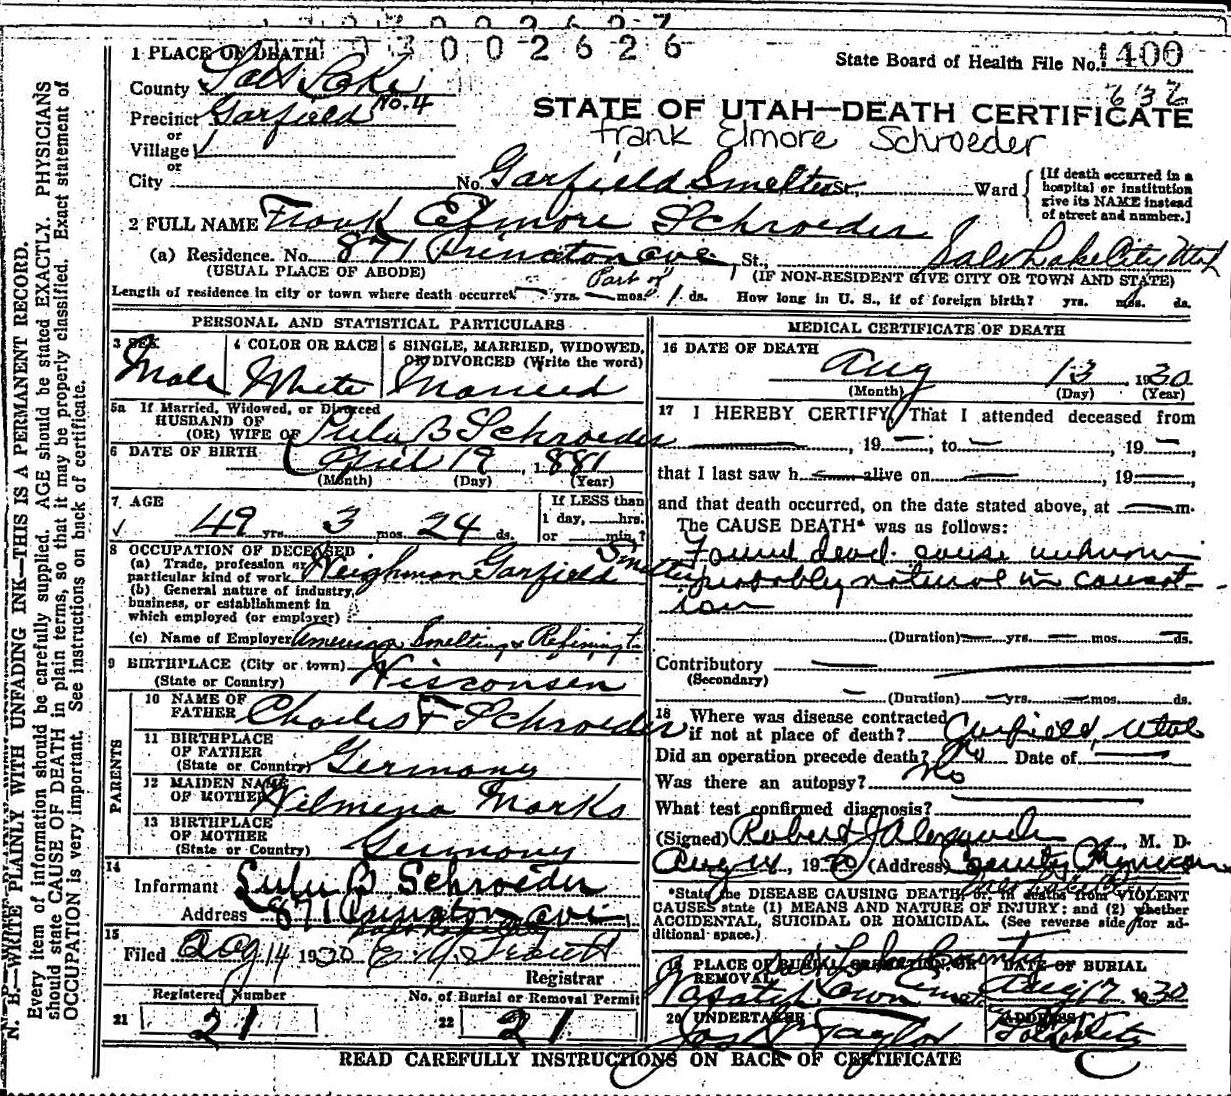 3002626
1 PLACE OF DEATH
State Board of Health File No. 1400
County Salt Lake
632
Precinct Garfield No. 4
STATE OF UTAH—DEATH CERTIFICATE
or
Frank Elmore Schroeder
Village
or
City No. Garfield Smelter St., Ward
[If death occurred in a hospital or institution give its NAME instead of street and number.]
2 FULL NAME Frank Elmore Schroeder
(a) Residence. No. 871 Princeton Ave St., Salt Lake City Utah
(USUAL PLACE OF ABODE) (IF NON-RESIDENT GIVE CITY OR TOWN AND STATE)
Length of residence in city or town where death occurred — yrs. — mos. Part of 1 ds. How long in U. S., if of foreign birth? yrs. mos. ds.
PERSONAL AND STATISTICAL PARTICULARS
3 SEX Male
4 COLOR OR RACE White
5 SINGLE, MARRIED, WIDOWED, OR DIVORCED (Write the word) Married
5a If Married, Widowed, or Divorced
HUSBAND OF
(OR) WIFE OF Lula B Schroeder
6 DATE OF BIRTH April 19, 1881
(Month) (Day) (Year)
7 AGE 49 yrs. 3 mos. 24 ds.
If LESS than 1 day, hrs. or min.?
8 OCCUPATION OF DECEASED
(a) Trade, profession or particular kind of work Weighman Garfield Smelter
(b) General nature of industry, business, or establishment in which employed (or employer)
(c) Name of Employer American Smelting & Refining
9 BIRTHPLACE (City or town)
(State or Country) Wisconsin
PARENTS
10 NAME OF FATHER Charles F Schroeder
11 BIRTHPLACE OF FATHER
(State or Country) Germany
12 MAIDEN NAME OF MOTHER Wilmena Marks
13 BIRTHPLACE OF MOTHER
(State or Country) Germany
14
Informant Lulu B Schroeder
Address 871 Princeton Ave
15
Filed Aug 14 1930
Registrar
Registered Number
21 21
No. of Burial or Removal Permit
22 21
MEDICAL CERTIFICATE OF DEATH
16 DATE OF DEATH
Aug 13, 1930
(Month) (Day) (Year)
17 I HEREBY CERTIFY, That I attended deceased from
—, 19—, to —, 19—,
that I last saw h— alive on —, 19—,
and that death occurred, on the date stated above, at — m.
The CAUSE DEATH* was as follows:
Found dead. cause unknown
probably natural in causat-
ion
(Duration) — yrs. — mos. — ds.
Contributory —
(Secondary)
— (Duration) — yrs. — mos. ds.
18 Where was disease contracted
if not at place of death? Garfield, Utah
Did an operation precede death? No Date of —
Was there an autopsy? No
What test confirmed diagnosis? —
(Signed) Robert J Alexander, M. D.
Aug 14, 1930 (Address) County Physician
*State the DISEASE CAUSING DEATH, or, in deaths from VIOLENT
CAUSES state (1) MEANS AND NATURE OF INJURY; and (2) whether
ACCIDENTAL, SUICIDAL OR HOMICIDAL. (See reverse side for ad-
ditional space.)
19 PLACE OF BURIAL, CREMATION, OR REMOVAL Salt Lake County
Wasatch Lawn Cemet.
DATE OF BURIAL
Aug 17 1930
20 UNDERTAKER
Jos Wm Taylor
ADDRESS
READ CAREFULLY INSTRUCTIONS ON BACK OF CERTIFICATE
N. B.—WRITE PLAINLY WITH UNFADING INK—THIS IS A PERMANENT RECORD.
Every item of information should be carefully supplied. AGE should be stated EXACTLY. PHYSICIANS
should state CAUSE OF DEATH in plain terms, so that it may be properly classified. Exact statement of
OCCUPATION is very important. See instructions on back of certificate.